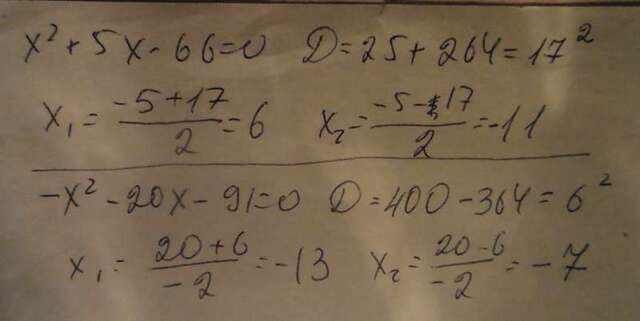 x² + 5x - 66 = 0 D = 25 + 264 = 17²
x₁ = (-5 + 17)/2 = 6 x₂ = (-5 - 17)/2 = -11
-x² - 20x - 91 = 0 D = 400 - 364 = 6²
x₁ = (20 + 6)/-2 = -13 x₂ = (20 - 6)/-2 = -7